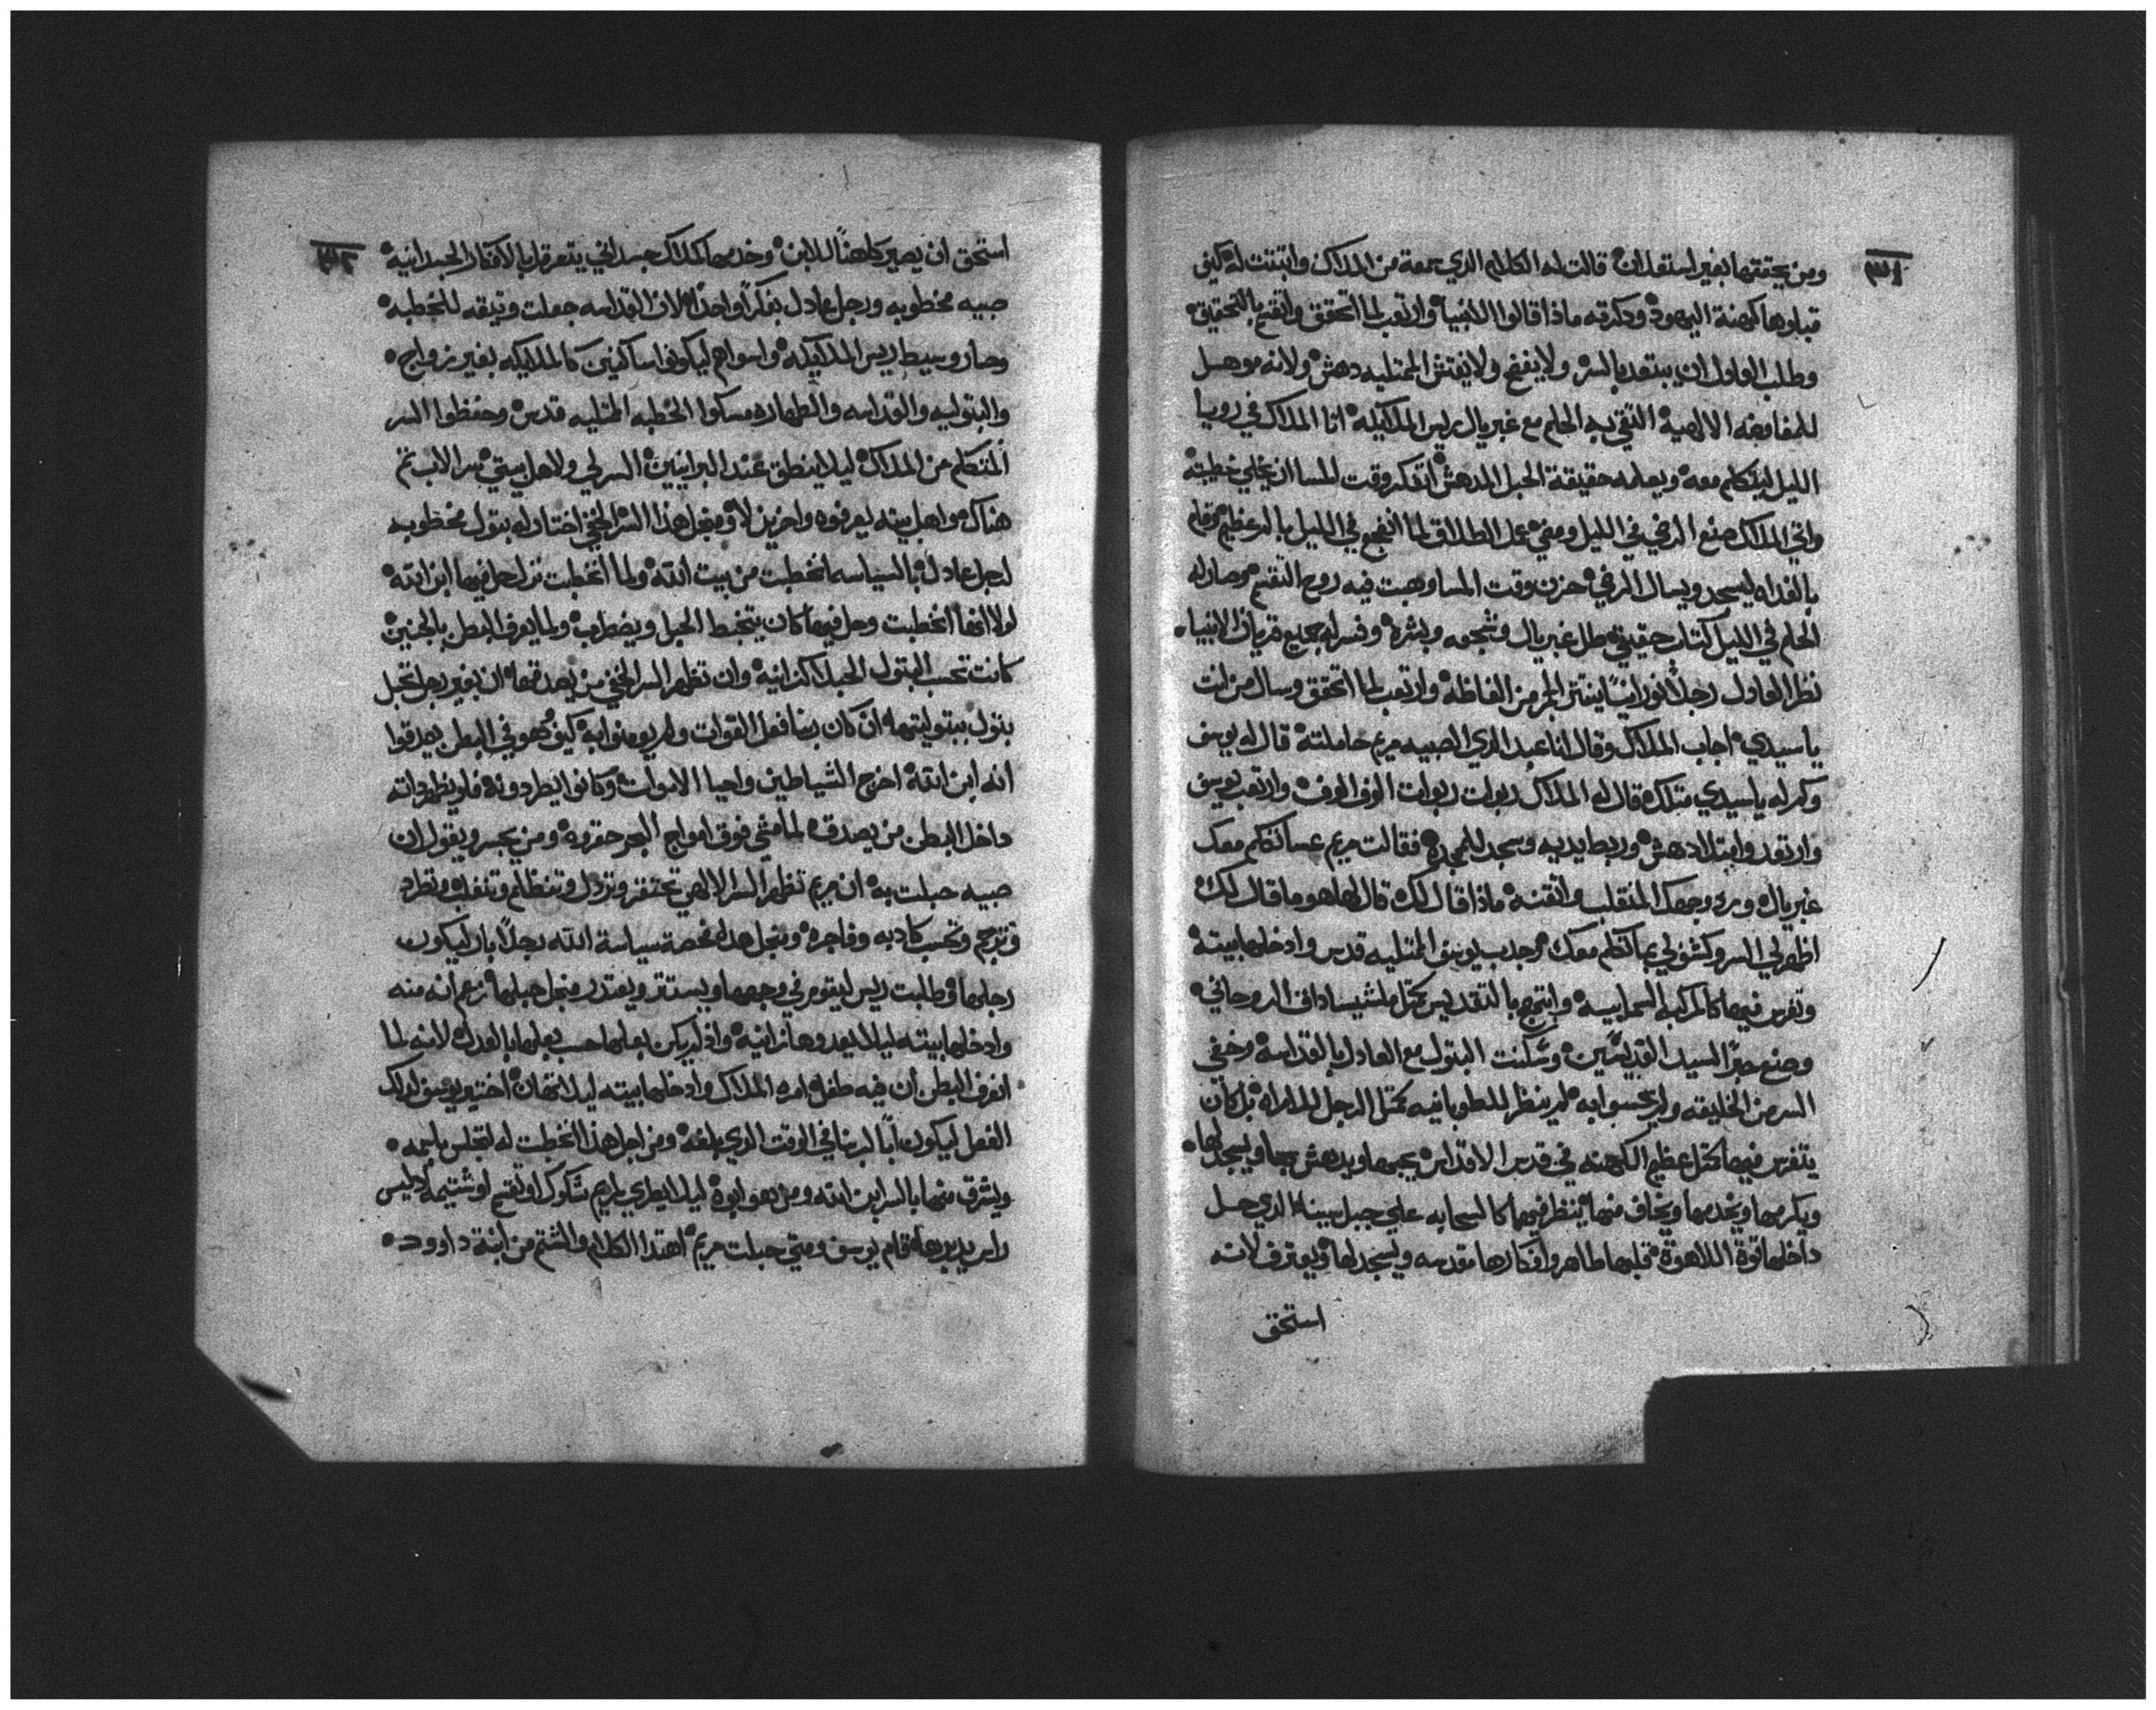 ومن يحققها بغير استعلان قالت له الكلام الذي سمعة من الملاك واتبتت له كيف
قبلوها كهنة اليهود ودكرته ماذا قالوا الانبيا وارتعب لما اتحقق واتقنع بالتحقيق
وطلب العادل ان يبتعد بالسر ولا يفضح ولا يفتش الممتليه دهش ولانه موهل
للمفاوضه الالهية التقي به الحلم مع غبريال ريس الملايكه اتا الملاك في رويا
الليل ليتكلم معه ويعلمه حقيقة الحبل المدهش اتفكر وقت المسا ان يخلي خطيبته
واتي الملاك صنع الرضي في الليل ومضي عمل الطلاق لما انضجع في الليل بالم عظيم وقام
بالغداه ليسجد ويسال الرضي حزن وقت المسا وهبت فيه روح النقم وصار له
الحلم في الليل كتاب حقيقي طل غبريال وشجعه وبشره وفسر له جميع قريان الانبياء
نظر العادل رجلا نورانيا ينتر الجمر من الفاظه وارتعب لما اتحقق وسال من انت
ياسيدي اجاب الملاك وقال انا عبد الذي الصبيه مريم حاملته قال له يوسف
وكم له ياسيدي متلك قال له الملاك ربوات ربوات الوف الوف وارتعب يوسف
وارتعد وامتلا دهش وربط يديه وسجد للمجده فقالت مريم عسا تكلم معك
غبريال ورد وجهك المنقلب واتقنه ماذا قال لك قال لها هو ما قال لك
اظهر لي السر وكشف لي بما تكلم معك وجدب يوسف الممتليه قدس وادخلها بيته
وتفرس فيها كالمركبه السماييه وابتهج بالتقديس كمتل ملشيساداق الروحاني
وصنع حبر السيد القديسين وسكنت البتول مع العادل بالقداسه وخفي
السر من الخليقه ولم يحسوا به لم ينظر للطوبانيه كمتل الرجل للامراه بل كان
يتفرس فيها كمتل عظيم الكهنه في قدس الاقداس يحبها ويدهش بها ويسجد لها
ويكرمها ويخدمها ويخاف منها ينظر فيها كالسحابه علي جبل سينا الذي حل
داخلها قوة اللاهوة قلبها طاهر وافكارها مقدسه ويسجد لها ويعترف لانه
استحق
استحق ان يصير كاهنا للابن وخدمها كملاك جسداني يتعرقل بالافكار الجسدانيه
صبيه مخطوبه ورجل عادل بفكرا واحدا لان القداسه جعلت وتيقه للخطبه
وصار وسيط ريس الملايكه واسواهم ليكونوا ساكنين كالملايكه بغير زواج
والبتوليه والقداسه والطهاره مسكوا الخطبه الممتليه قدس وحفظوا السر
المتكلم من الملاك ليلا ينطق عند البرانيين السر لي ولاهل بيتي سر الاب تم
هناك مواهل بيته يعرفوه واخرين لا ومنجل هذا السر الخفي اختار له بتول مخطوبه
لرجل عادل بالسياسه انخطبت من بيت الله ولما انخطبت نزل حل فيها ابن الله
لولا انها انخطبت وحل فيها كان يتخبط الحبل ويضطرب ولما يعرف البطن بالجنين
كانت تحسب البتول الحبلا كزانيه وان تظهر السر الخفي من يصدقها ان بغير رجل تحبل
بتول ببتوليتها ان كان ربنا فعل القوات ولم يومنوا به كيف وهو في البطن يصدقوا
انه ابن الله اخرج الشياطين واحيا الاموات وكانوا يطردونه فلو يظهر داته
داخل البطن من يصدق لما مشي فوق امواج البحر حقروه ومن يجسر ويقول ان
صبيه حبلت به ان مريم تظهر السر الالهي تحتقر وتردل وتنظلم وتنغلب وتطرد
وترجم وتحسب كادبه وفاجره ومنجل هذا فحصة سياسة الله رجلا بار ليكون
رجلها وطلبت ريس ليقوم في وجهها ويستتر ويعتدر منجل حبلها زعم انه منه
وادخلها بيته ليلا يعدوها زانيه واذ لم يكن بعلها حسب بعلها بالعدل لانه لما
انعرف البطن ان فيه طفل امره الملاك وادخلها بيته ليلا تتهان اختير يوسف لداك
الفعل ليكون ابا لربنا في الوقت الذي بلغه ومن اجل هذا انخطبت له لتجلس باسمه
ويشرق منها بالسر ابن الله ومن هو ابوه ليلا يطري لمريم شكوك او تقنع او شتيمه لاليس
راس يدبرها قام يوسف ومتي حبلت مريم اهتدا الكلام والشتم من ابنة داوود